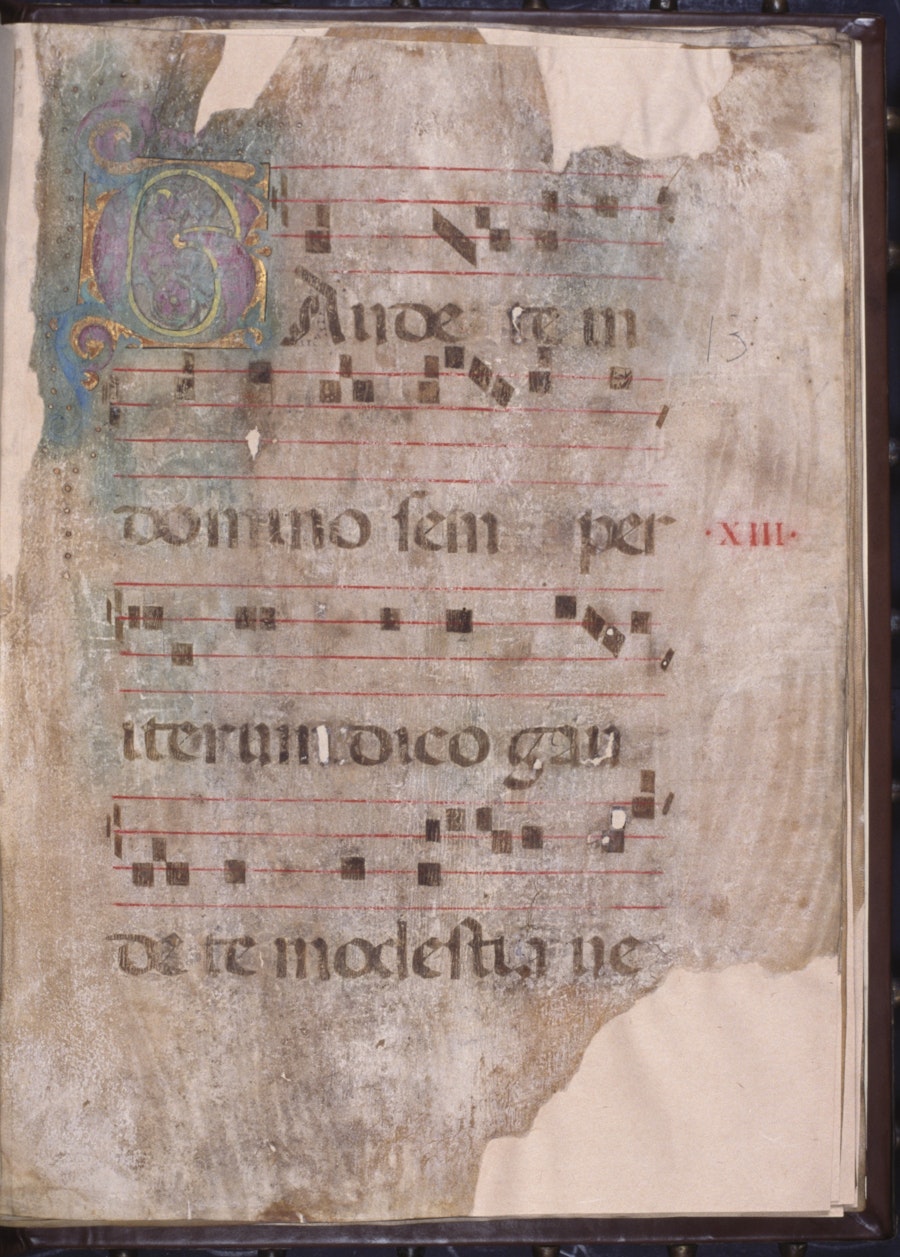 GAude te in
13
domino sem per
·XIII·
iterum dico gau
de te modestia ue